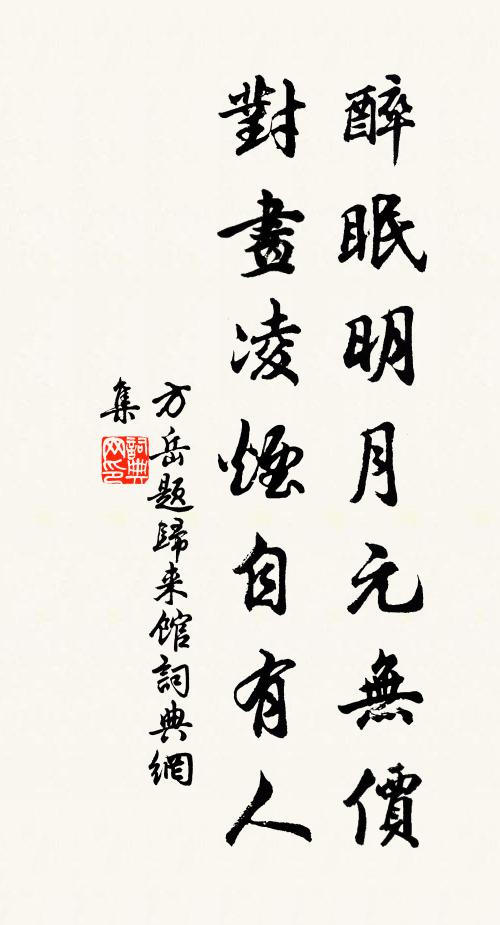 醉眠明月元無價
對畫凌煙自有人
方岳題歸来館詞典網
集
詞典
网印